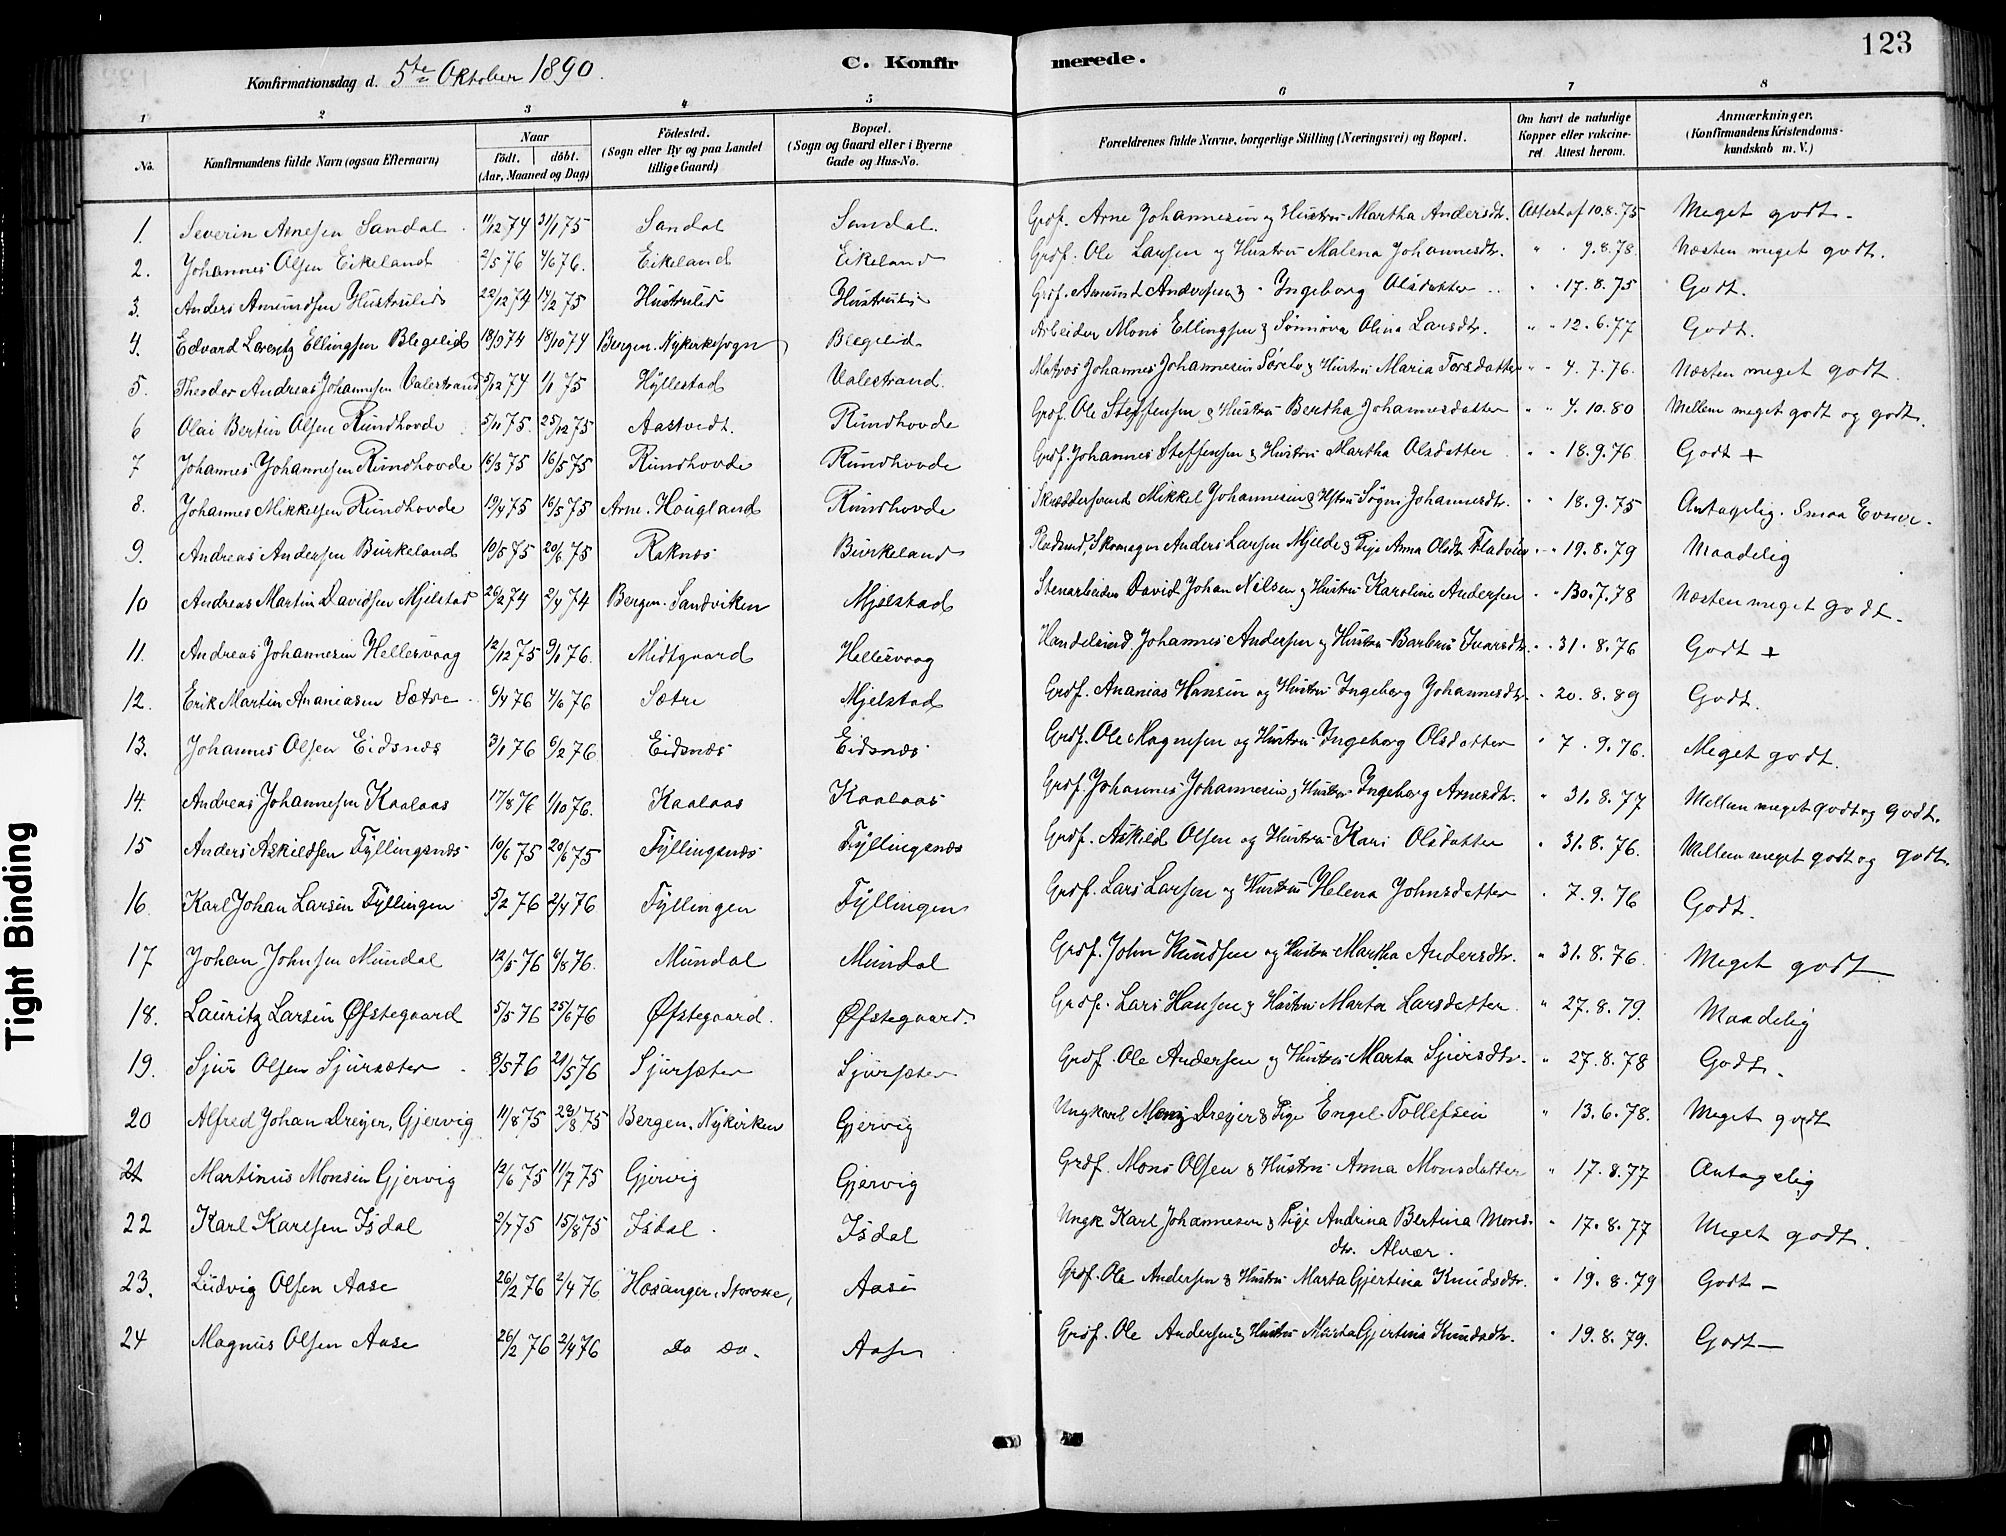 123
Konfirmationsdag d. 5te Oktober 1890.
C. Konfirmerede.
1 2 3 4 5 6 7 8
No. Konfirmandens fulde Navn (ogsaa Efternavn) Naar født. døbt. (Aar, Maaned og Dag) Fødested. (Sogn eller By og paa Landet tillige Gaard) Bopæl. (Sogn og Gaard eller i Byerne Gade og Hus-No. Forældrenes fulde Navne, borgerlige Stilling (Næringsvei) og Bopæl. Om havt de naturlige Kopper eller vakcineret Attest herom. Anmærkninger. (Konfirmandens Kristendomskundskab m. V.)
1. Severin Arnesen Sandal 11/12 74 31/1 75 Sandal Sandal. Grdf. Arne Johannesen og Hustru Martha Andersdtr. Attest af 10.8.75 Meget godt.
2. Johannes Olsen Eikeland 2/5 76 4/6 76. Eikeland Eikeland Grdf. Ole Larsen og Hustru Malena Johannesdtr. " " 9.8.78. Næsten meget godt.
3. Anders Amundsen Hustrulid 22/12 74 14/2 75 Hustrulid Hustrulid Grdf. Amund Andersen & " Ingeborg Olsdatter " " 17.8.75 Godt.
4. Edvard Lorentz Ellingsen Blegelid 18/9 74 18/10 74 Bergen. Nykirkesogn Blegelid Arbeider Mons Ellingsen & Sønnøva Olina Larsdtr. " " 12.6.77 Godt.
5. Theodor Andreas Johannesen Valestrand 5/12 74 1/1 75 Hyllestad Valestrand. Matros Johannes Johannesen Sørebø & Hustru Maria Torsdatter " " 4.7.76. Næsten meget godt.
6 Olai Bertin Olsen Rundhovde 5/11 75. 25/12 75 Aastvedt. Rundhovde Grdf. Ole Steffensen & Hustru Bertha Johannesdatter " " 4.10.80 Mellem meget godt og godt.
7 Johannes Johannesen Rundhovde 16/3 75 16/5 75 Rundhovde Rundhovde Grdf. Johannes Steffensen & Hustru Martha Olsdatter " " 18.9.76. Godt +
8. Johannes Mikkelsen Rundhovde 19/4 75 16/5 75 Arne. Hougland Rundhovde Skræddersvend Mikkel Johannesen & Hstru Søgni Johannesdtr. " " 18.9.75 Antagelig. Smaa Evner.
9. Andreas Andersen Burkeland 10/5 75 20/6 75 Raknæs Burkeland Pladsmd, Skomager Anders Larsen Mjelde & Pige Anna Olsdtr " " 19.8.79 Maadelig
10 Andreas Martin Davidsen Mjelstad 26/2 74 2/4 74 Bergen. Sandviken Mjelstad Stenarbeider David Johan Nilsen & Hustru Karoline Andersen " " 30.7.78 Næsten meget godt.
11. Andreas Johannesen Hellesvaag 12/12 75 9/1 76. Midtgaard Hellesvaag Handelsmd. Johannes Andersen og Hustru Barbru Ivarsdtr. " 31.8.76 Godt +
12. Erik Martin Ananiasen Sætre 6/4 76 4/6 76 Sætre Mjelstad Grdf. Ananias Hansen og Hustru Ingeborg Johannesdtr " 20.8.89 Godt.
13. Johannes Olsen Eidsnæs 3/1 76 6/2 76 Eidsnæs Eidsnæs Grdf. Ole Magnesen og Hustru Ingeborg Olsdatter " 7.9.76. Meget godt.
14. Andreas Johannesen Kaalaas 17/8 76 1/10 76. Kaalaas Kaalaas Grdf. Johannes Johannesen & Hustru Ingeborg Arnesdtr. " 31.8.77 Mellem meget godt og godt.
15 Anders Askildsen Fyllingsnæs 10/6 75 20/6 75 Fyllingsnæs Fyllingsnæs Grdf. Askild Olsen og Hustru Kari Olsdatter " 31.8.76. Mellem meget godt og godt.
16. Karl Johan Larsen Fyllingen 5/2 76 2/4 76 Fyllingen Fyllingen Grdf. Lars Larsen og Hustru Helena Johnsdatter " 7.9.76 Godt.
17 Johan Johnsen Mundal 12/5 76 6/8 76. Mundal Mundal Grdf. John Knudsen og Hustru Martha Andersdtr. " 31.8.76. Meget godt
18. Lauritz Larsen Øfstegaard 5/5 76 25/6 76 Øfstegaard. Øfstegaard. Grdf. Lars Hansen & Hustru Marta Larsdatter. " 27.8.79. Maadelig
19. Sjur Olsen Sjursæter 8/5 76 21/5 76 Sjursæter Sjursæter Grdf. Ole Andersen og Hustru Marta Sjursdtr. " 27.8.78 Godt.
20 Alfred Johan Dreyer, Gjervig 11/8 75 23/8 75 Bergen. Nykirken Gjervig Ungkarl Dreyer & Pige Engel Tollefsen " 13.6.78. Meget godt
21 Martinus Monsen Gjervig 12/6 75 11/7 75 Gjervig Gjervig Grdf. Mons Olsen & Hustru Anna Monsdatter " 17.8.77 Antagelig
22 Karl Karlsen Isdal 2/7 75 15/8 75 Isdal. Isdal Ungk. Karl Johannesen & Pige Andrina Bertina Monsdtr. Alvær. " 17.8.77 Meget godt.
23. Ludvig Olsen Aase 26/2 76 2/4 76 Hosanger, Aase Grdf. Ole Andersen & Hustru Marta Gjertina Knudsdtr. " 19.8.79 Godt –
24 Magnus Olsen Aase 26/2 76 2/4 76 Do Do. Aase Grdf. Ole Andersen & Hustru Marta Gjertina Knudsdtr. " 19.8.79. Godt –
Tight Binding